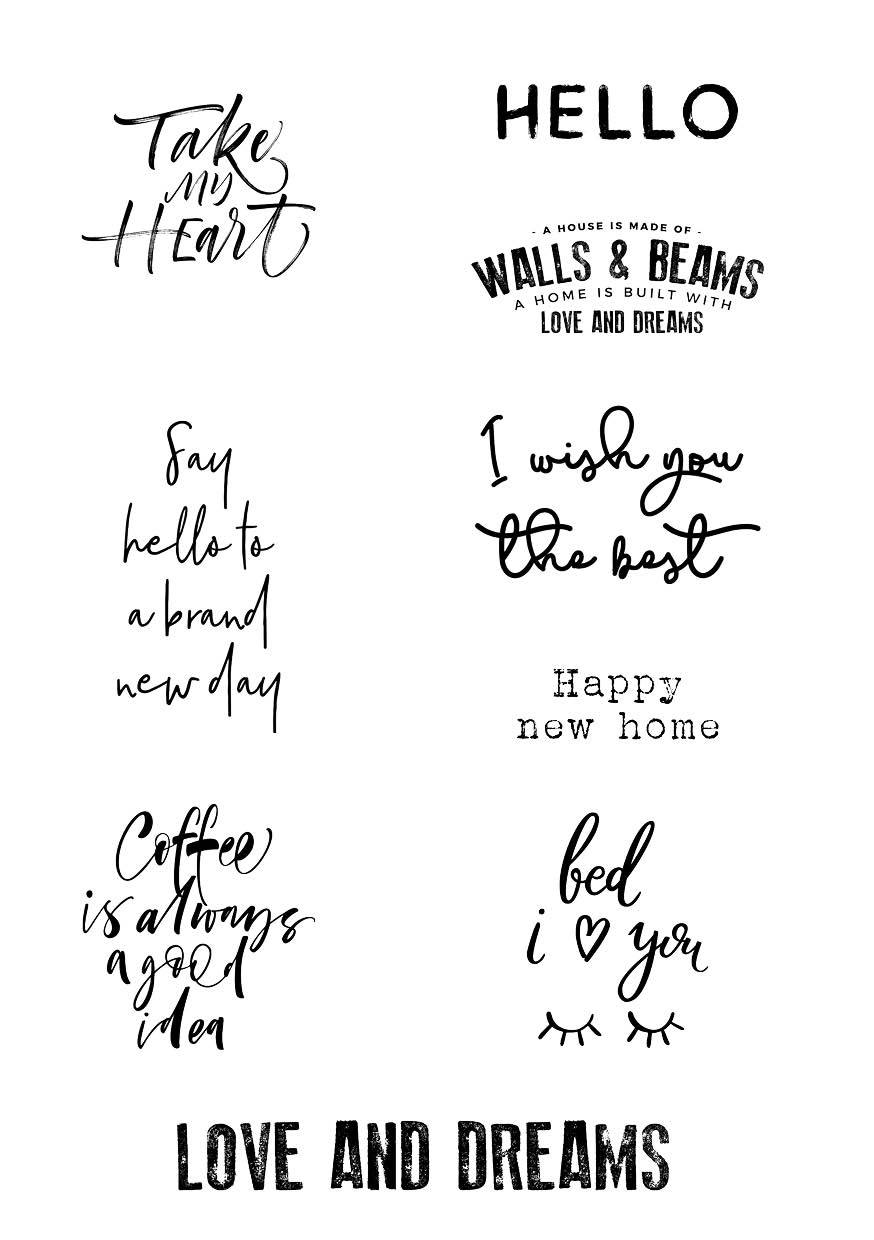 Take
My
Heart
HELLO
- A HOUSE IS MADE OF -
WALLS & BEAMS
A HOME IS BUILT WITH
LOVE AND DREAMS
Say
hello to
a brand
new day
I wish you
the best
Happy
new home
Coffee
is always
a good
idea
bed
i ♡ you
LOVE AND DREAMS